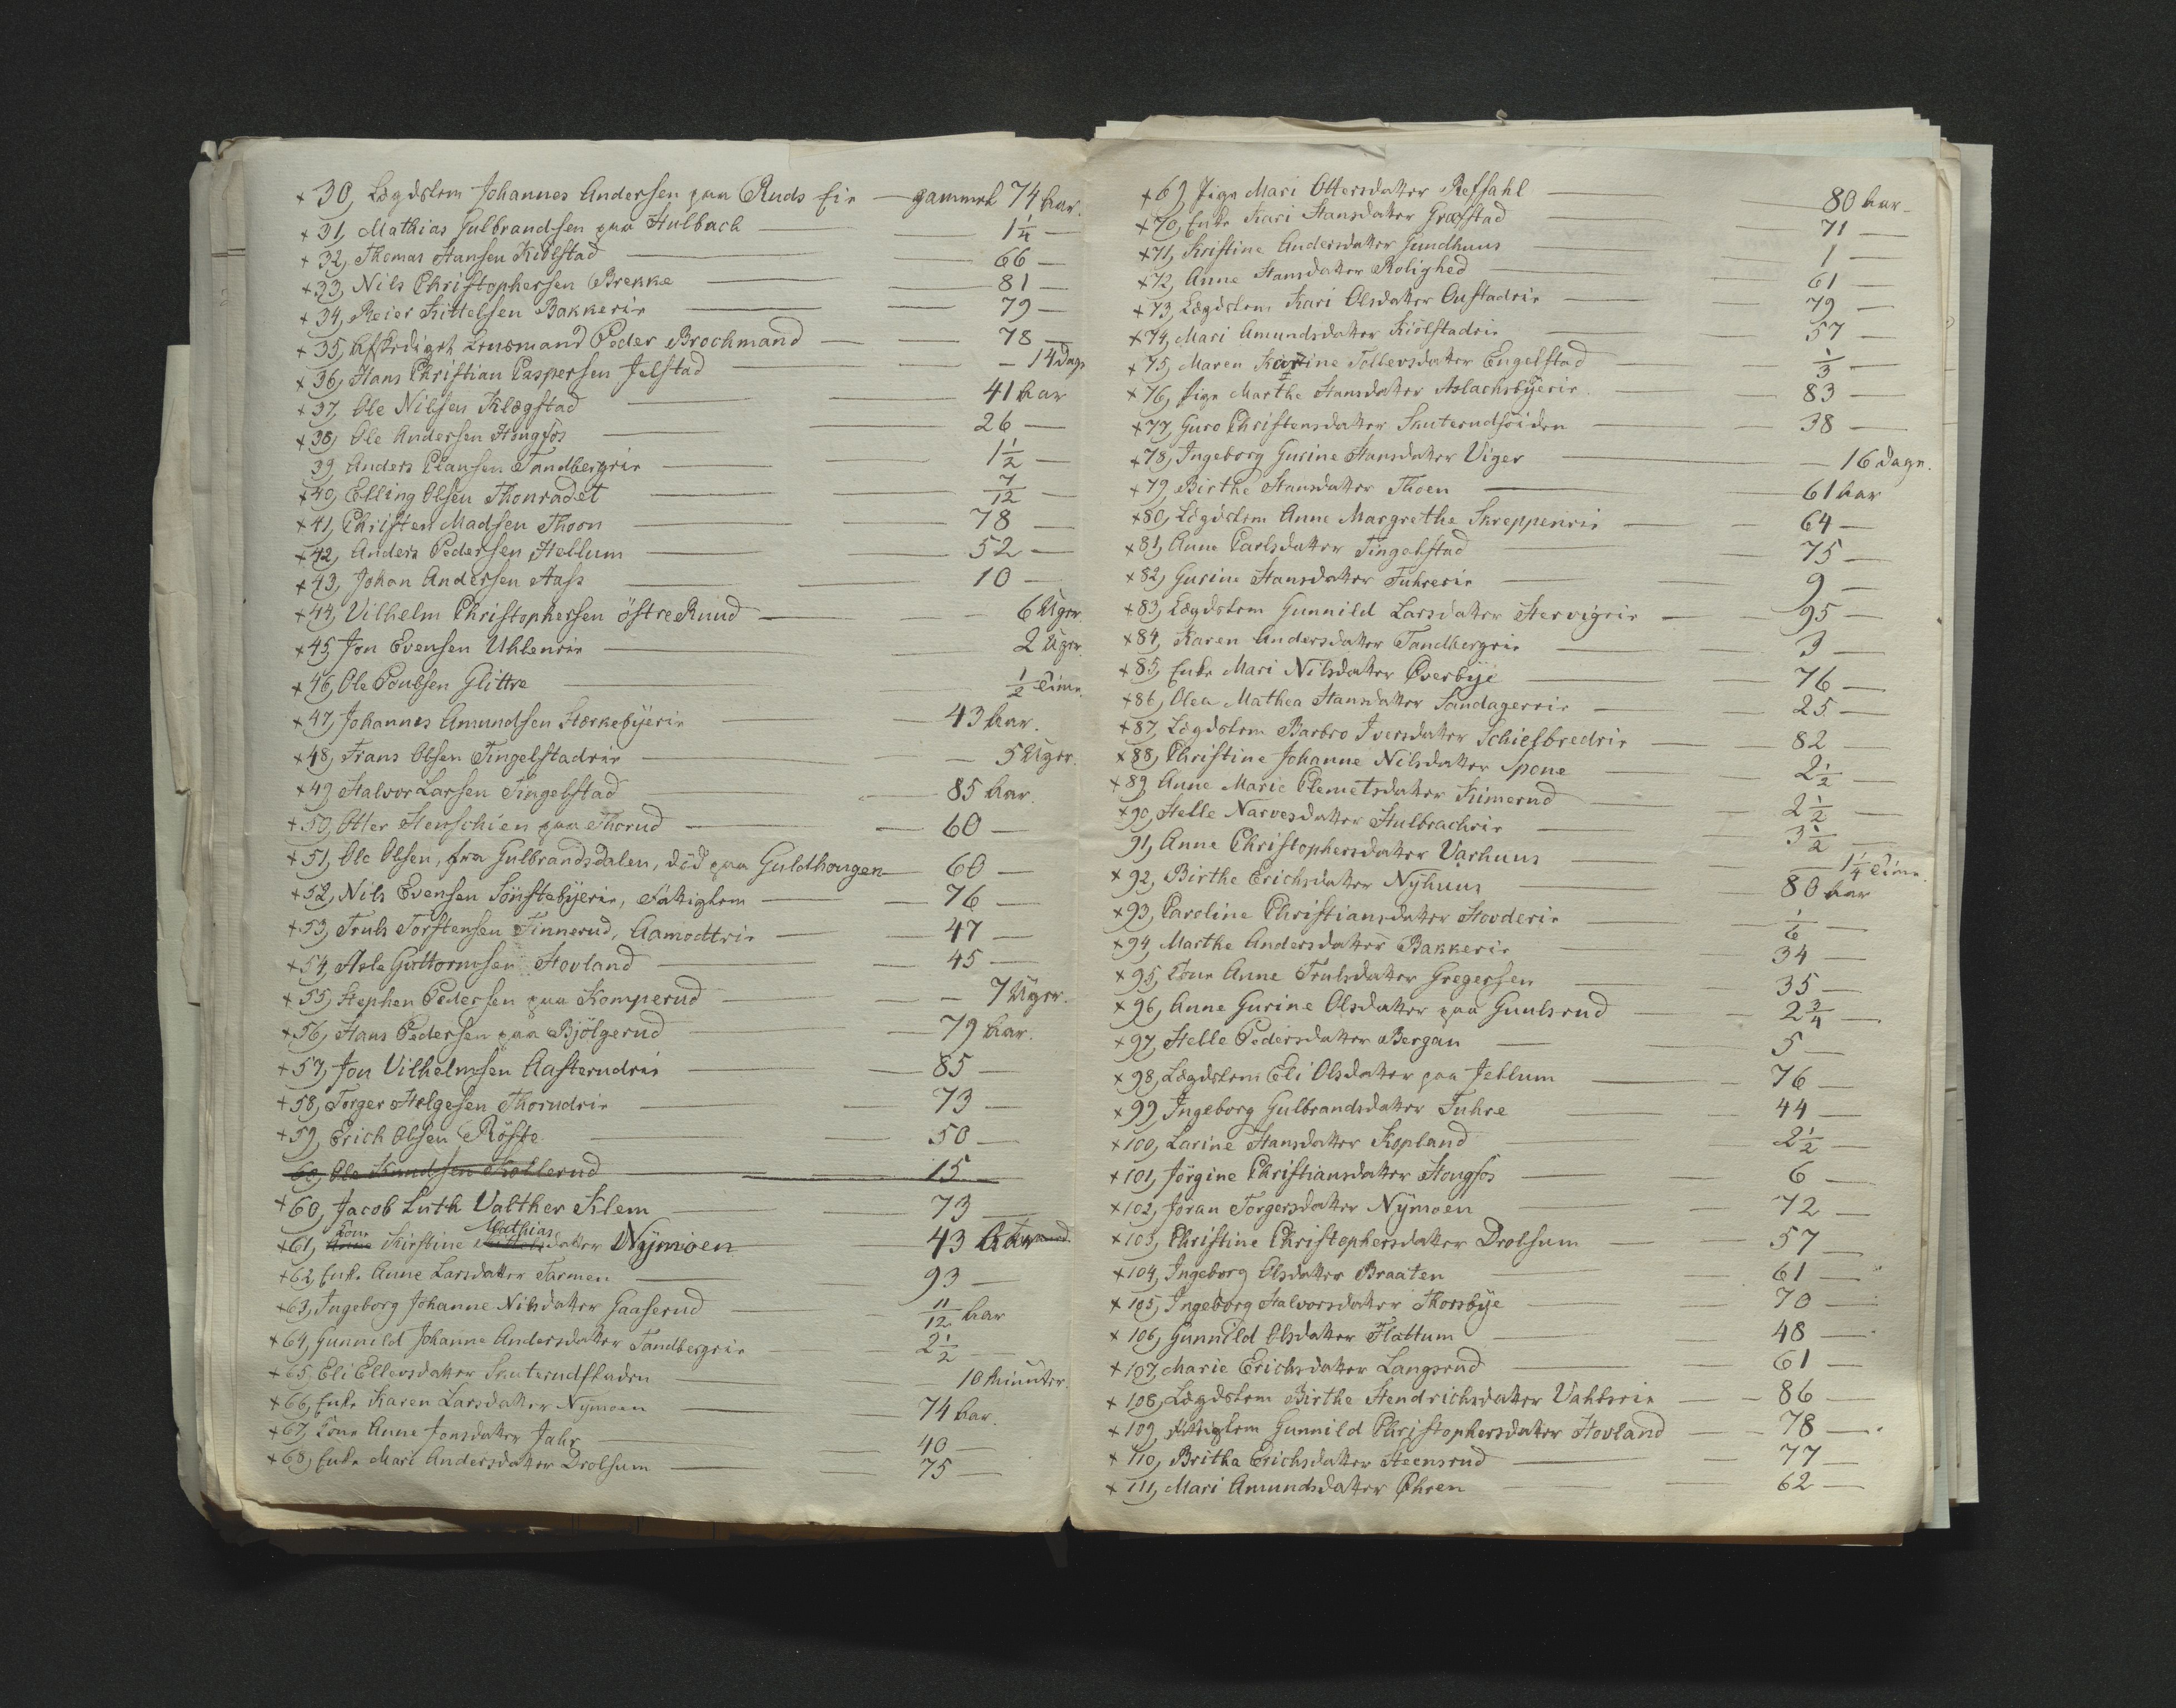 + 30, Lægdslem Johannes Andersen paa Ruds Eie — gammel 74 Aar.
+ 31, Mathias Gulbrandsen paa Hulbach — 1 1/4 —
+ 32, Thomas Hansen Kiölstad — 66 —
+ 33, Nils Christophersen Brekke — 81 —
+ 34, Reier Kittelsen Bakkeeie — 79 —
+ 35, Afskediget Lensmand Peder Brochmand — 78 —
+ 36, Hans Christian Caspersen Jelstad — 14 Dage
+ 37, Ole Nilsen Klægstad — 41 Aar
+ 38, Ole Andersen Hougfos — 26 —
39, Anders Clausen Tandbergeie — 1 1/2 —
+ 40, Elling Olsen Thonradet — 7/12 —
+ 41, Christen Madsen Thoen — 78 —
+ 42, Anders Pedersen Hellum — 52 —
+ 43, Johan Andersen Aass — 10 —
+ 44, Vilhelm Christophersen östre Ruud — 6 Uger.
+ 45, Jon Evensen Uhleneie — 2 Uger.
+ 46, Ole Poulsen Glittre — 1/2 Time.
+ 47, Johannes Amundsen Stærkebyeeie — 43 Aar.
+ 48, Frans Olsen Tingelstadeie — 5 Uger.
+ 49, Halvor Larsen Tingelstad — 85 Aar.
+ 50, Otter Henschien paa Thorud — 60 —
+ 51, Ole Olsen, fra Gulbrandsdalen, död paa Guldhougen — 60 —
+ 52, Nils Evensen Sönstebyeie, Fattiglem — 76 —
+ 53, Truls Torstensen Finnerud, Aamodteie — 47 —
+ 54, Asle Guttormsen Hovland — 45 —
+ 55, Stephen Pedersen paa Komperud — 7 Uger.
+ 56, Hans Pedersen paa Bjölgerud — 79 Aar.
+ 57, Jon Vilhelmsen Aasterudeie — 85 —
+ 58, Torger Helgesen Thorudeie — 73 —
+ 59, Erich Olsen Röste — 50 —
60, Ole Knudsen Kollerud — 15 —
+ 60, Jacob Luth Valther Klem — 73 —
Kone Mathias
+ 61, Kirstine datter Nÿmoen — 43 Aar
+ 62, Enke Anne Larsdatter Tarmen — 93 —
+ 63, Ingeborg Johanne Nilsdatter Gaaserud — 11/12 Aar
+ 64, Gunnild Johanne Andersdatter Tandbergeie — 2 1/2 —
+ 65, Eli Ellevsdatter Skuterudfladen — 10 Minuter.
+ 66, Enke Karen Larsdatter Nÿmoen — 74 Aar.
+ 67, Kone Anne Jonsdatter Jahr — 40 —
+ 68, Enke Mari Andersdatter Drolsum — 75 —
+ 69, Pige Mari Ottersdatter Refsahl — 80 Aar —
+ 70, Enke Kari Hansdatter Græfstad — 71 —
+ 71, Kristine Andersdatter Gundhuus — 1 —
+ 72, Anne Hansdatter Rolighed — 61 —
+ 73, Lægdslem Kari Olsdatter Oustadeie — 79 —
+ 74, Mari Amundsdatter Kiölstadeie — 57 —
+ 75, Maren Karine Tollevsdatter Engelstad — 1/3 —
+ 76, Pige Marthe Hansdatter Aslachsbyeeie — 83 —
+ 77, Guro Christensdatter Skuterudseiden — 38 —
+ 78, Ingeborg Gurine Hansdatter Viger — 16 Dage.
+ 79, Birthe Hansdatter Thoen — 61 Aar
+ 80, Lægdslem Anne Margrethe Skreppeneie — 64 —
+ 81, Anne Carlsdatter Tingelstad — 75 —
+ 82, Gurine Hansdatter Fuhreeie — 9 —
+ 83, Lægdslem Gunnild Larsdatter Hervigeie — 95 —
+ 84, Karen Andersdatter Tandbergeie — 3 —
+ 85, Enke Mari Nilsdatter Overbye — 76 —
+ 86, Olea Mathea Hansdatter Sandagereie — 25 —
+ 87, Lægdslem Barbro Iversdatter Schielbredeie — 82
+ 88, Christine Johanne Nilsdatter Spone — 2 1/2 —
+ 89, Anne Marie Clemetsdatter Kimerud — 2 1/2 —
+ 90, Helle Narvesdatter Hulbacheie — 3 1/2 —
91, Anne Christophersdatter Varhuus — 1 1/4 Time.
+ 92, Birthe Erichsdatter Nÿhuus — 80 Aar
+ 93, Caroline Christiansdatter Hovdeeie — 1/6 —
+ 94, Marthe Andersdatter Bakkeeie — 34 —
+ 95, Kone Anne Trulsdatter Gregersen — 35 —
+ 96, Anne Gurine Olsdatter paa Guulsrud — 2 3/4 —
+ 97, Helle Pedersdatter Bergan — 5 —
+ 98, Lægdslem Eli Olsdatter paa Jellum — 76 —
+ 99, Ingeborg Gulbrandsdatter Fuhre — 44 —
+ 100, Larine Hansdatter Kopland — 2 1/2 —
+ 101, Jörgine Christiansdatter Hougfos — 6 —
+ 102, Joran Torgersdatter Nÿmoen — 72 —
+ 103, Christine Christophersdatter Drolsum — 57 —
+ 104, Ingeborg Olsdatter Braaten — 61 —
+ 105, Ingeborg Halvorsdatter Thorsbye — 70 —
+ 106, Gunnild Olsdatter Flattum — 48 —
+ 107, Marie Erichsdatter Langerud — 61 —
+ 108, Lægdslem Birthe Hendrichsdatter Vahlseie — 86 —
+ 109, Fattiglem Gunnild Christophersdatter Hovland — 78 —
+ 110, Britha Erichsdatter Steensrud — 77 —
+ 111, Mari Amundsdatter Ohren — 62 —